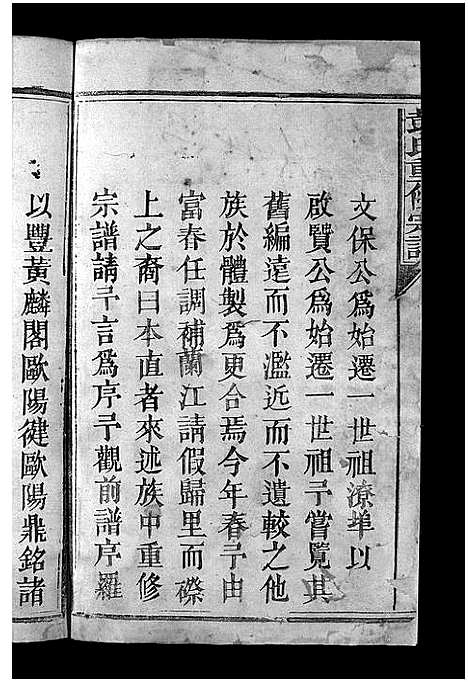 彭氏重修宗譜
文保公爲始遷一世祖潦埠以
啟賢公爲始遷一世祖予嘗覧其
舊編遠而不濫近而不遺較之他
族於體製爲更合焉今年春予由
富春任調補蘭江請假歸里而磜
上之裔曰本直者來述族中重修
宗譜請予言爲序予觀前譜序羅
以豐黃麟閣歐陽健歐陽鼎銘諸